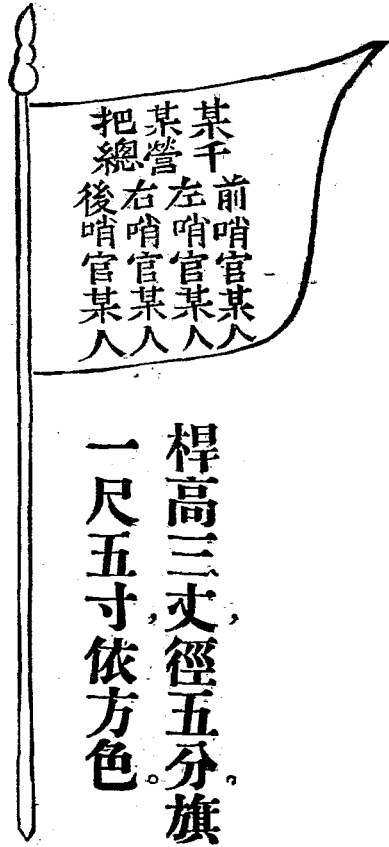 某千
某營
把總
前哨官某人
左哨官某人
右哨官某人
後哨官某人
桿高三丈，徑五分。旗
一尺五寸，依方色。